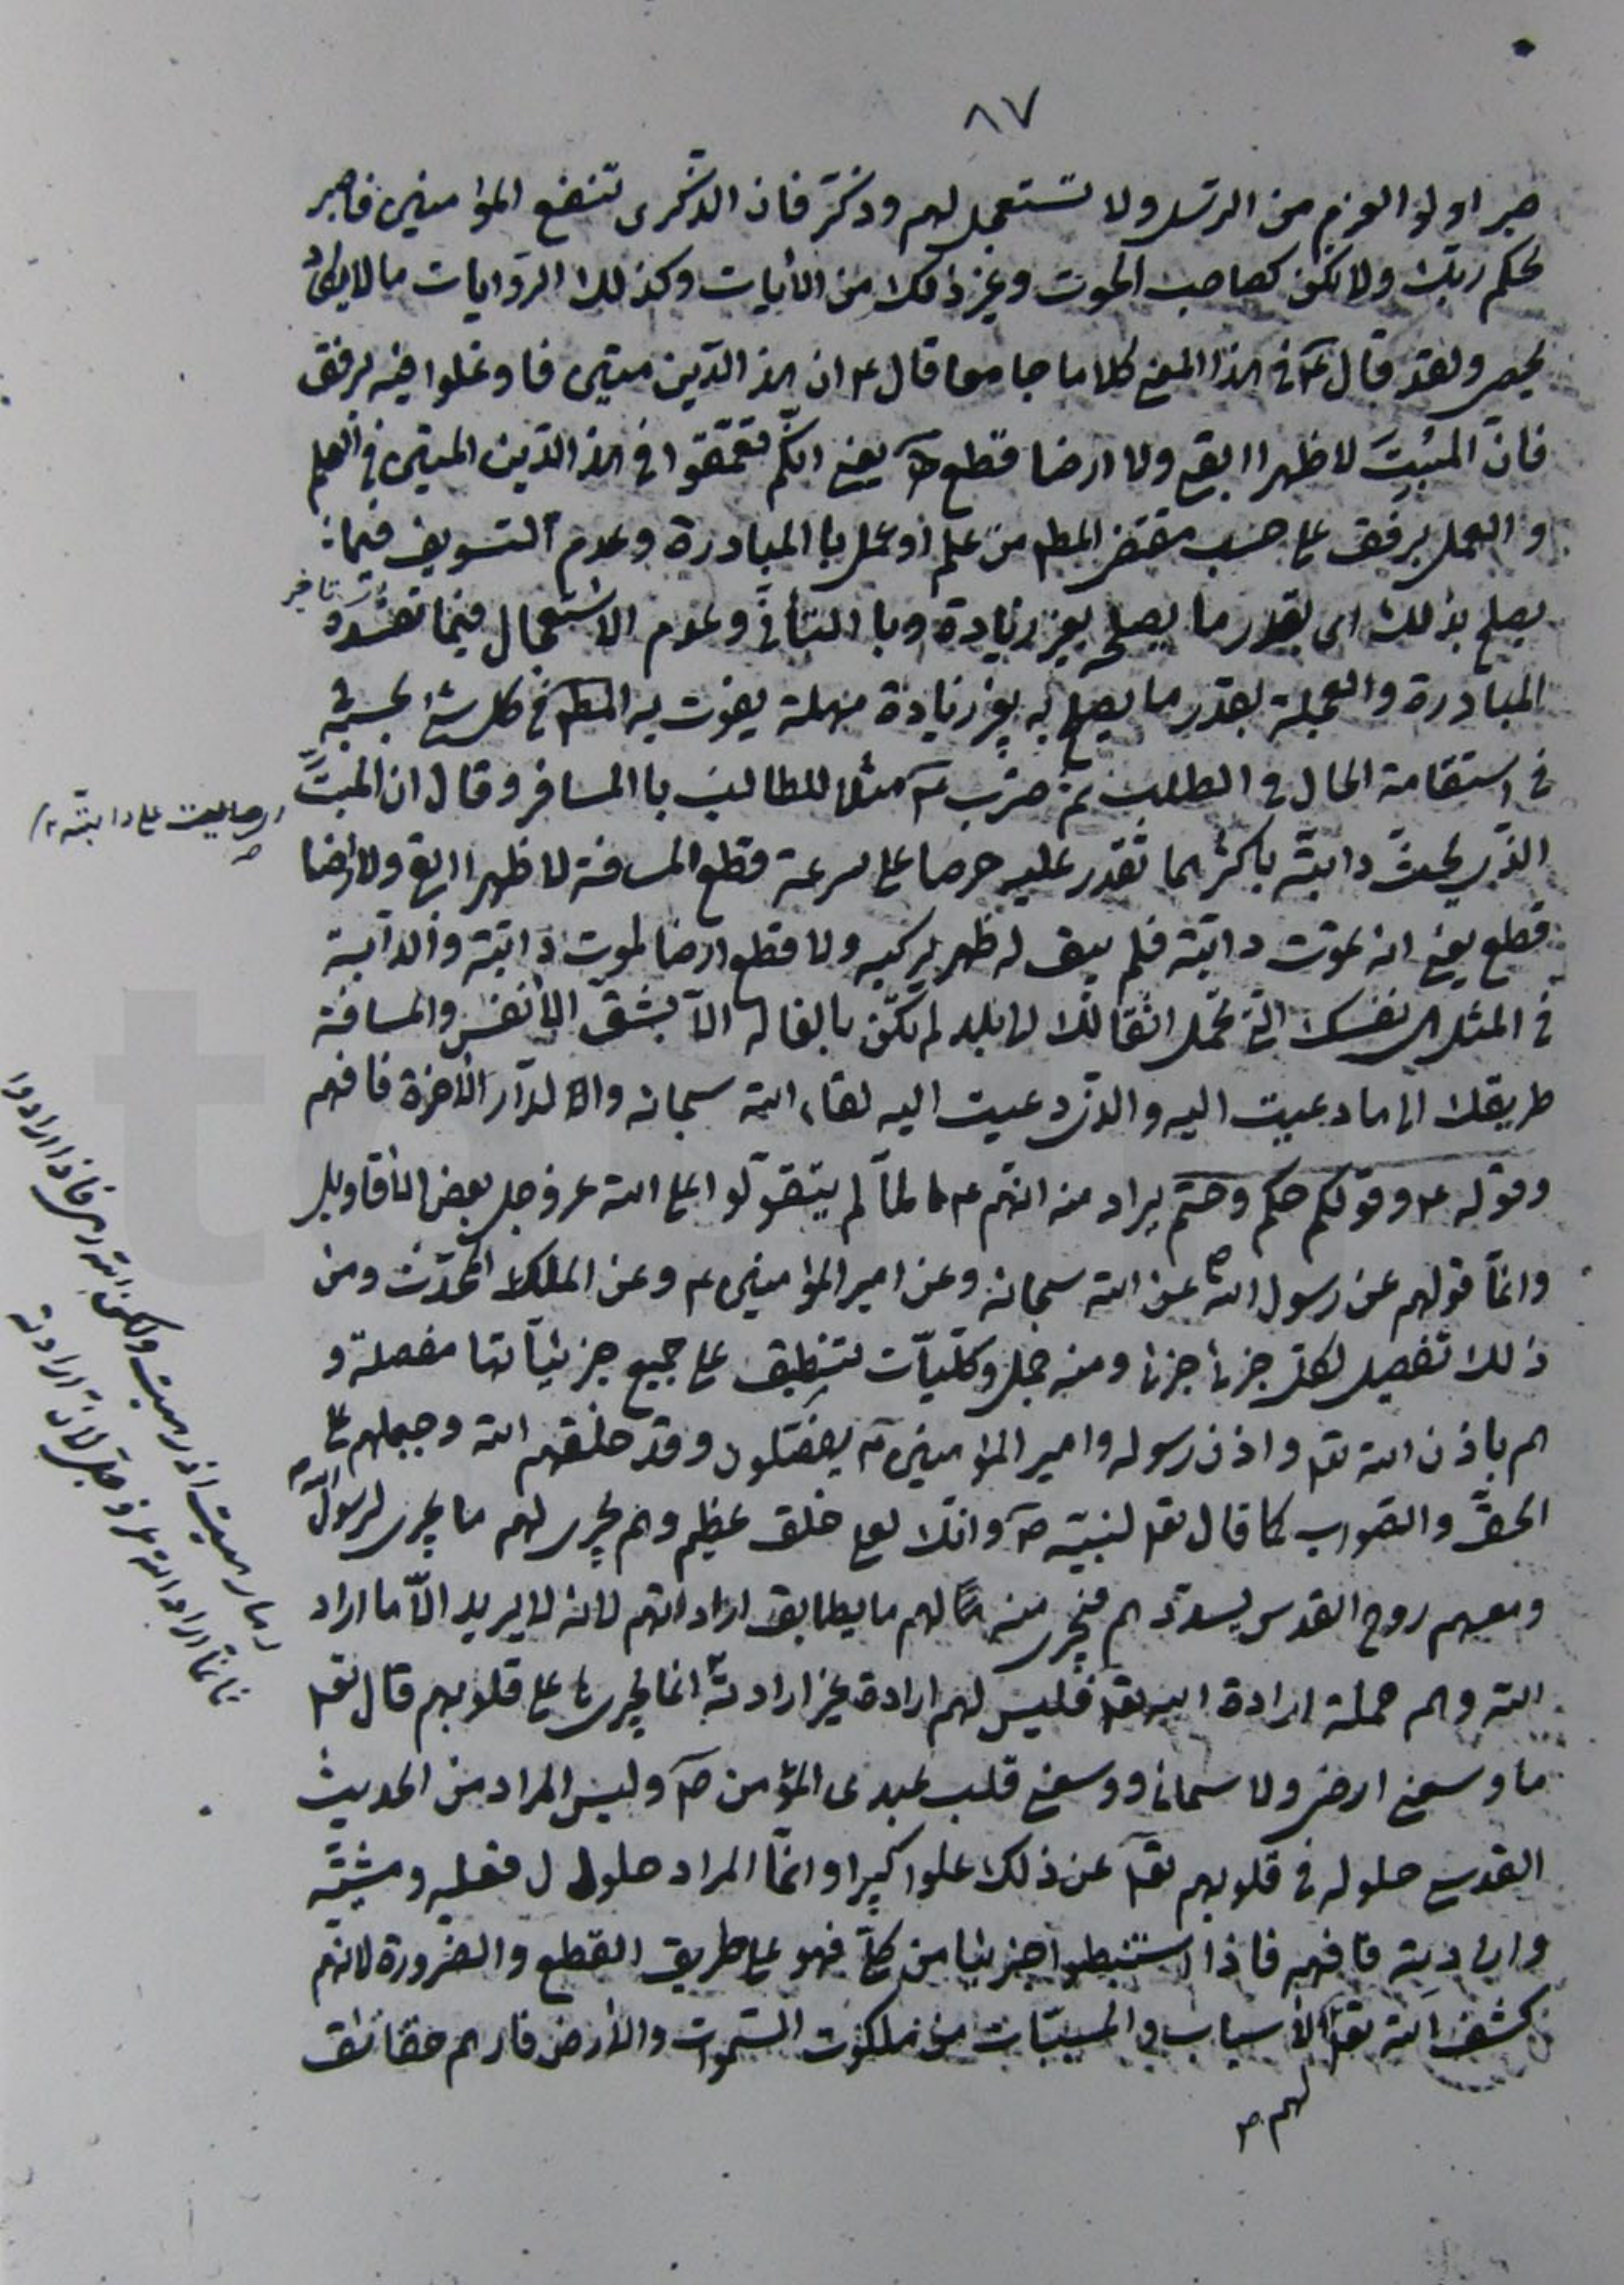 ٨٧
صبر اولوا العزم من الرسل ولا تستعجل لهم وذكّر فان الذكرى تنفع المؤمنين فاصبر
لحكم ربّك ولا تكن كصاحب الحوت وغير ذلك من الأيات وكذلك الروايات ما لا يكاد
يحصى ولقد قال ص۪ في هذا المعنى كلاما جامعا قال ع ان هذا الدّين متين فاوغلوا فيه برفق
فانّ المنبتّ لا ظهرا ابقى ولا ارضا قطع ص۪ يعني انكّم تعمّقوا في هذا الدّين المتين في العلم
والعمل برفق على حسب مقتضى المط من علم او عمل با المبادرة وعدم التسويف فيما
يصلح بذلك اى بقدر ما يصلح بغير زيادة وبا التأنّى وعدم الاستعجال فيما تفسده
المبادرة والعجلة بقدر ما يصلح به بغير زيادة مهملة يفوت به المط في كل شئ بحسبه
في استقامة الحال في الطلب ثم ضرب ص۪ مثلا للطالب با المسافر وقال ان المنبتّ
الذّى يحثّ دابتّه باكثر مما تقدر عليه حرصا على سرعة قطع المسافة لا ظهرا ابقى ولا ارضا
قطع يعني انه تموت دابتّه فلم يبق له ظهر يركبه ولا قطع ارضا لموت دابتّه والدآبة
في المثل هى نفسك التّى تحمل اثقالك الى بلد لم تكن بالغاله الاّ بشقّ الأنفس والمسافة
طريقك الى ما دعيت اليه والذّى دعيت اليه لقاء الله سبحانه والدّار الأخرة فافهم
وقوله ع وقولكم حكم وحتم يراد منه انهم ع لمّا لم يتقوّلوا على الله عز وجل بعض الأقاويل
وانمّا قولهم عن رسول الله ص عن الله سبحانه وعن امير المؤمنين ع وعن الملك المحدّث ومن
ذلك تفصيل لكل جزئ جزئ ومنه جمل وكليّات تنطبق على جميع جزئيّاتها مفصلة و
هم باذن الله تع واذن رسوله وامير المؤمنين ع يفصّلون وقد خلقهم الله وجبلهم على
الحقّ والصّواب كما قال تع لنبيّه ص۪ وانّك لعلى خلق عظيم وهم يجرى لهم ما يجرى لرسول الله ص
ومعهم روح القدس يسدّدهم فيجرى منه لهم ما يطابق اراداتهم لانه لا يريد الاّ ما اراد
الله وهم حملة ارادة الله تع فليس لهم ارادة غير ارادته انما يجرى بها على قلوبهم قال تع
ما وسعنى ارضى ولا سمائى ووسعنى قلب عبدى المؤمن ص۪ وليس المراد من الحديث
القدسى حلوله في قلوبهم تع عن ذلك علوا كبيرا وانمّا المراد حلول فعله ومشيّته
وارادته فافهم فاذا استنبطوا جزئيا من كلّى فهو على طريق القطع والضرورة لانهم
كشف الله تع الأسباب والمسببّات من ملكوت السّموات والأرض فاراهم حقائق
لهم ص
على دابتّه
وما رميت اذ رميت ولكن الله رمى فاذا ارادوا
فانمّا اراد الله عز وجل لانّ ارادته